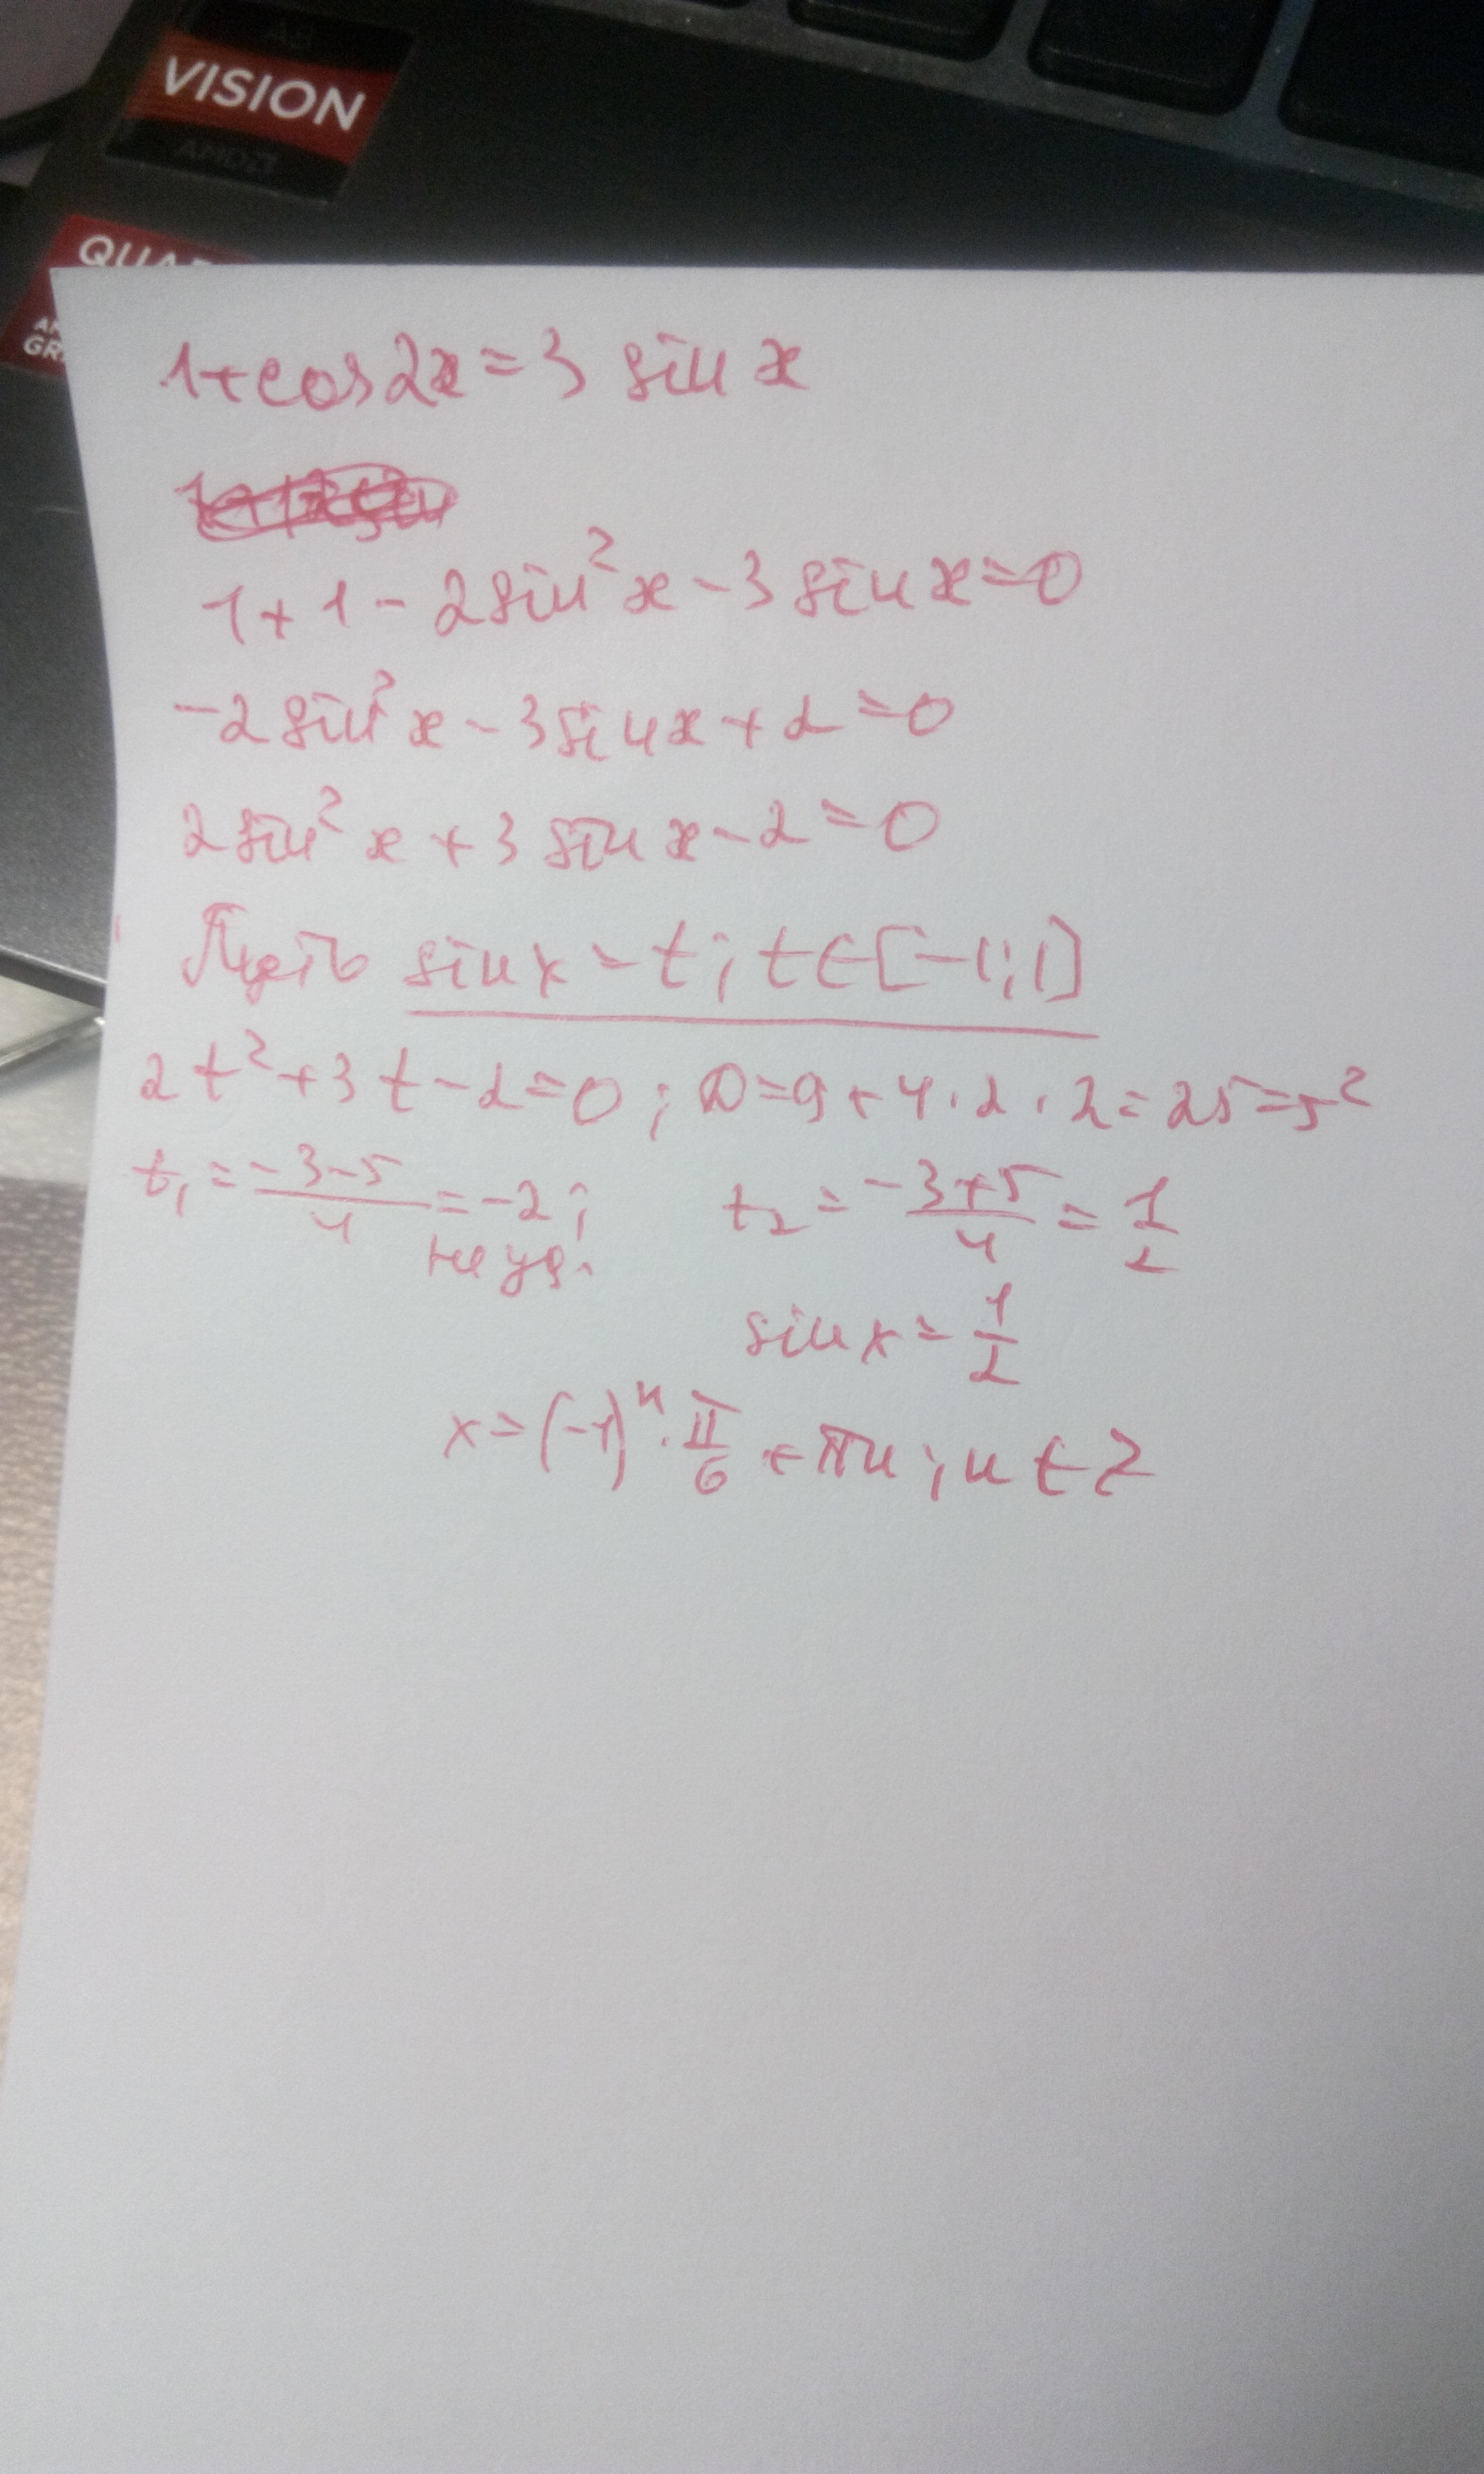 VISION
AMD
QUA
GR
1+cos2x=3 sin x
1+1-2sin²x-3sinx=0
-2sin²x-3sinx+2=0
2sin²x+3sinx-2=0
Пусть sinx=t; t∈[-1;1]
2t²+3t-2=0; D=9+4·2·2=25=5²
t₁=(-3-5)/4=-2; t₂=(-3+5)/4=1/2
не уд.
sinx=1/2
x=(-1)ⁿ·π/6+πn; n∈Z